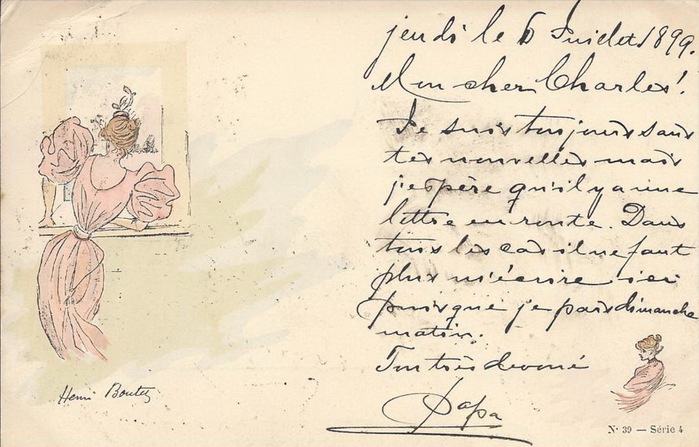 jeudi le 6 Juillet 1899.
Mon cher Charles!
Je suis toujours sans
tes nouvelles mais
j'espère qu'il y a une
lettre en route. Dans
tous les cas il ne faut
plus m'écrire ici
puisque je pars dimanche
matin.
Ton très devoué
Papa
Henri Boutet
N° 39 — Série 4